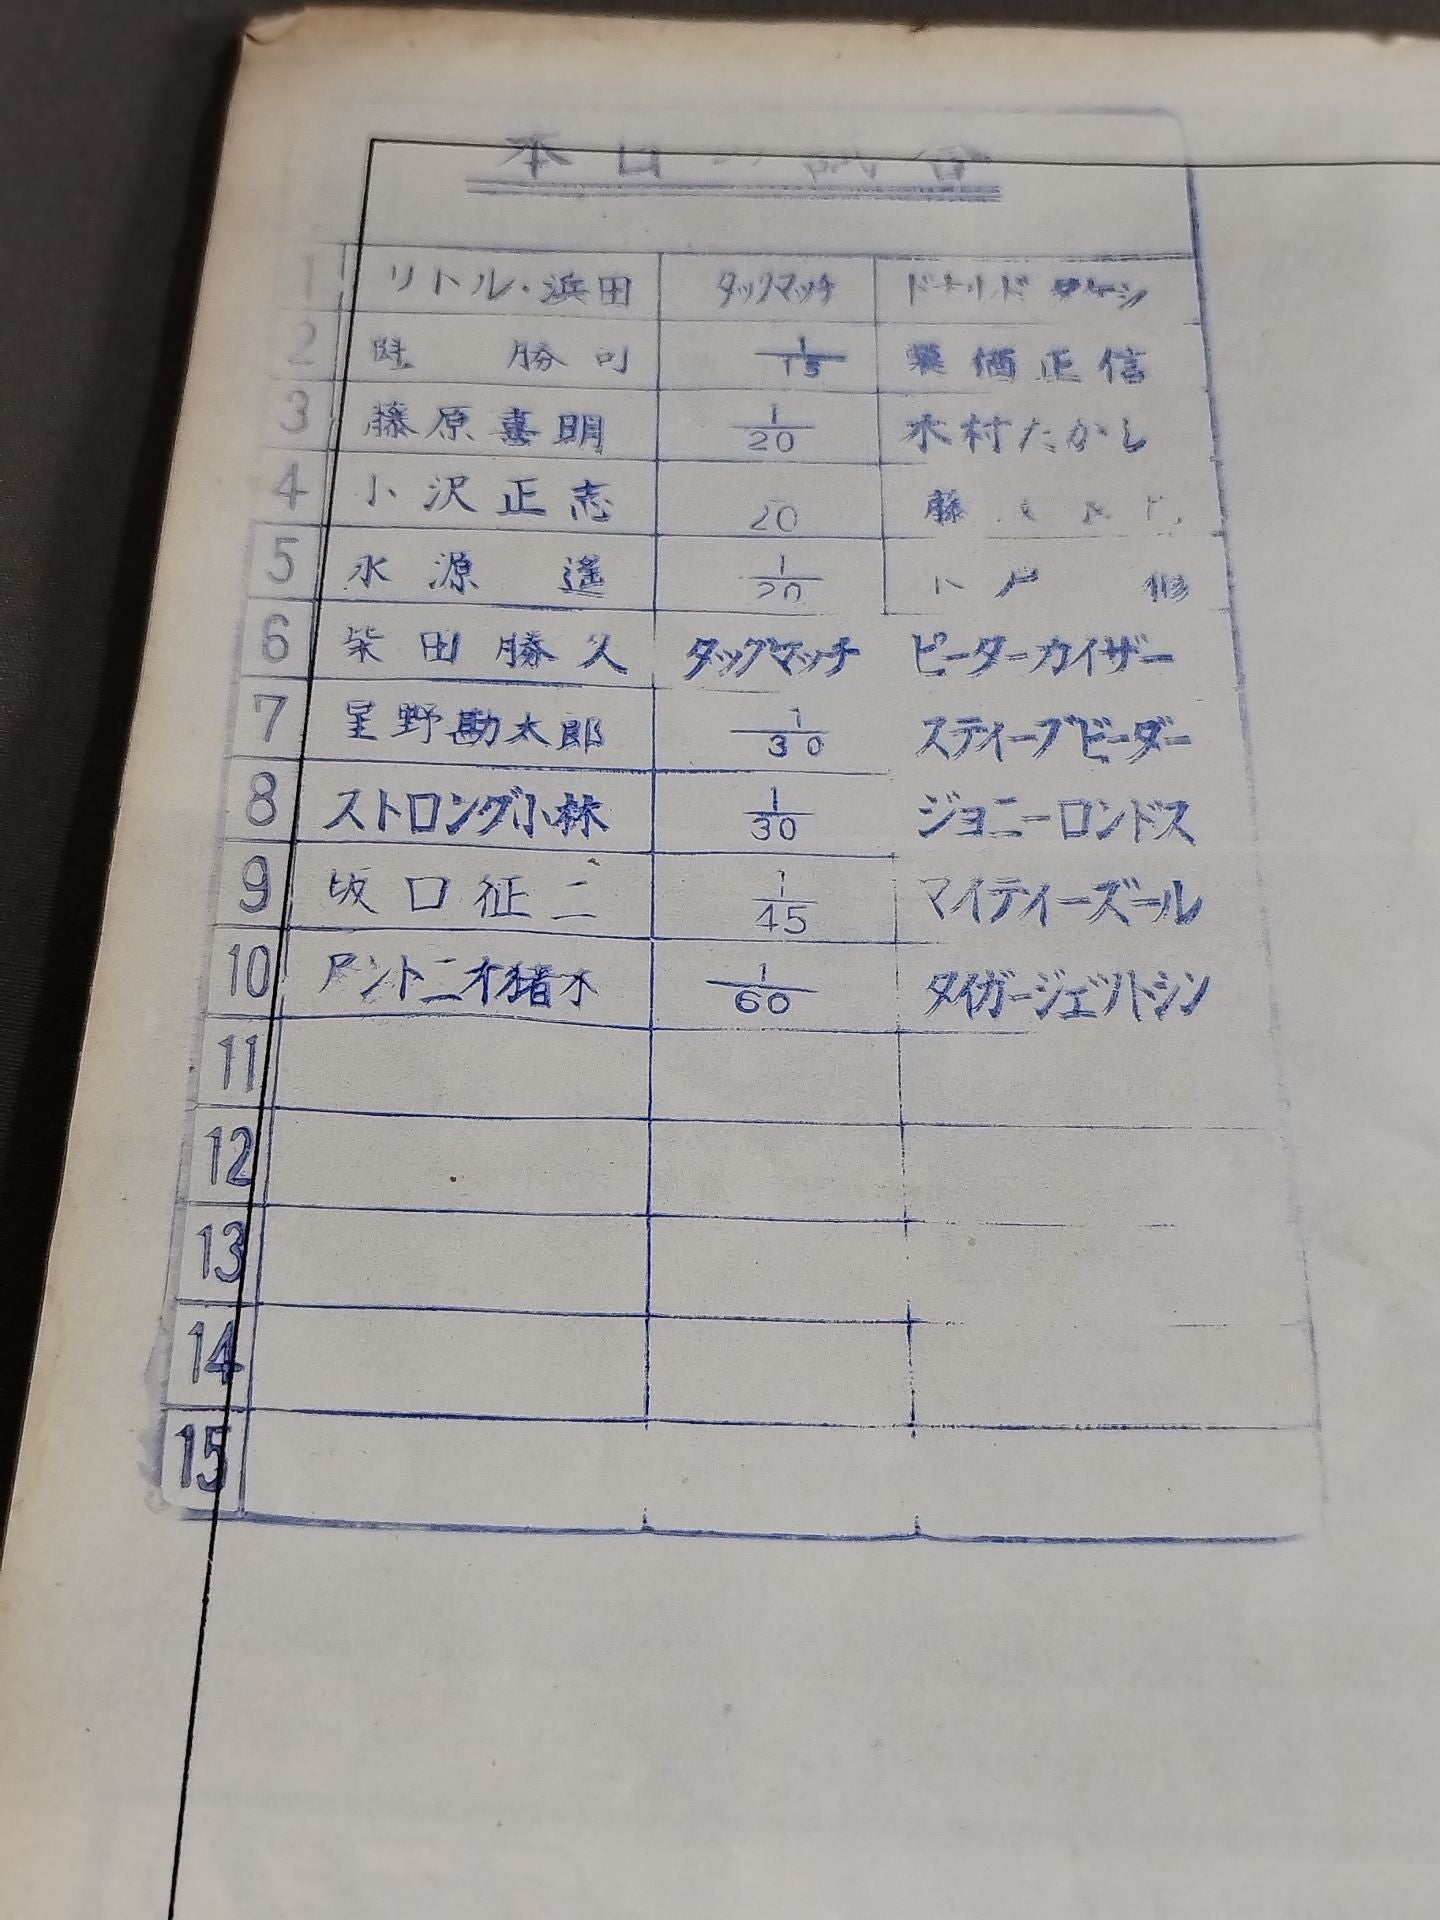 本日の試合
1 リトル・浜田 タッグマッチ ドナルド タケシ
2 勝司 1/15 栗栖正信
3 藤原喜明 1/20 木村たかし
4 小沢正志 20 藤
5 永源 遙 1/20 小戸 修
6 柴田勝久 タッグマッチ ピーターカイザー
7 星野勘太郎 1/30 スティーブビーダー
8 ストロング小林 1/30 ジョニーロンドス
9 坂口征二 1/45 マイティーズール
10 アントニオ猪木 1/60 タイガージェットシン
11
12
13
14
15